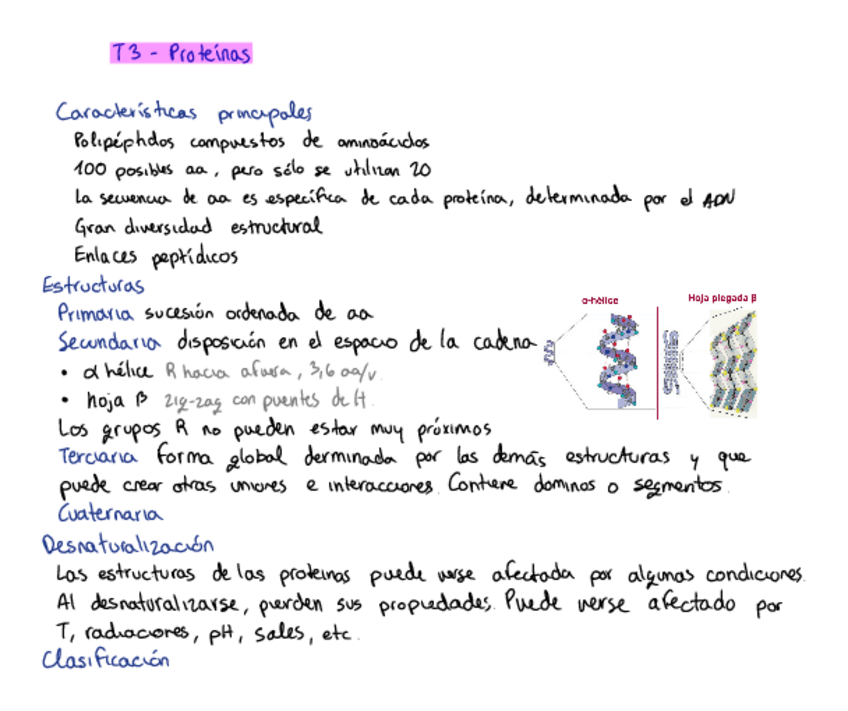 T3 - Proteínas
Características principales
Polipéptidos compuestos de aminoácidos
100 posibles aa, pero sólo se utilizan 20
La secuencia de aa es específica de cada proteína, determinada por el ADN
Gran diversidad estructural
Enlaces peptídicos
Estructuras
Primaria sucesión ordenada de aa
Secundaria disposición en el espacio de la cadena
• α hélice R hacia afuera, 3,6 aa/v.
• hoja β zig-zag con puentes de H.
α-hélice
Hoja plegada β
Los grupos R no pueden estar muy próximos
Terciaria forma global derminada por las demás estructuras y que
puede crear otras uniones e interacciones. Contiene dominos o segmentos.
Cuaternaria
Desnaturalización
Las estructuras de las proteinas puede verse afectada por algunas condiciones.
Al desnaturalizarse, pierden sus propiedades. Puede verse afectado por
T, radiaciones, pH, sales, etc.
Clasificación